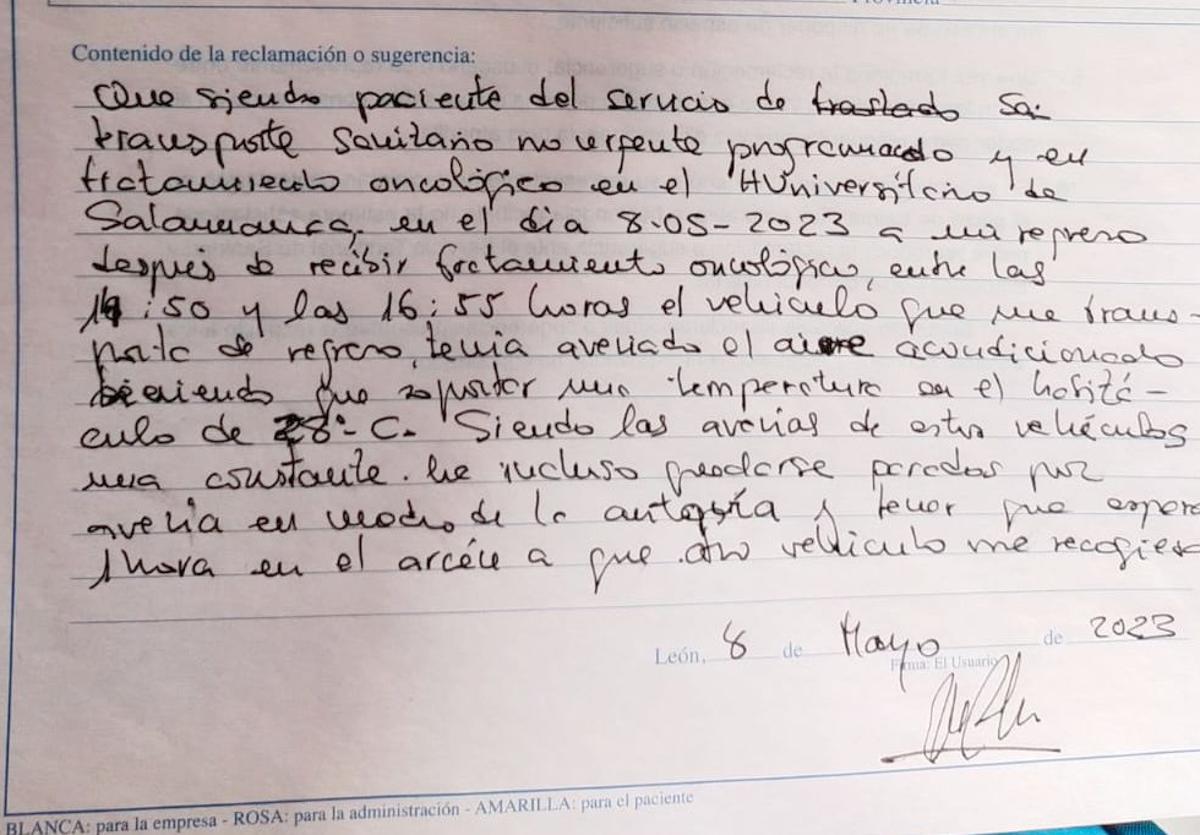 Provincia
Contenido de la reclamación o sugerencia:
Que siendo paciente del servicio de traslado Sa-
transporte Sanitario no urgente programado y en
tratamiento oncológico en el HUniversitario de
Salamanca, en el dia 8-05-2023 a mi regreso
después de recibir tratamiento oncológico, entre las
:50 y las 16:55 horas el vehiculo que me trans-
porta de regreso, tenia averiado el aire acondicionado
teniendo que soportar una temperatura en el habitá-
culo de 28º C. Siendo las averias de estos vehículos
una constante. he incluso quedarse parados por
averia en medio de la autovía y tener que espera
1 hora en el arcén a que otro vehiculo me recogiera
León, 8 de Mayo de 2023
Firma: El Usuario
BLANCA: para la empresa - ROSA: para la administración - AMARILLA: para el paciente